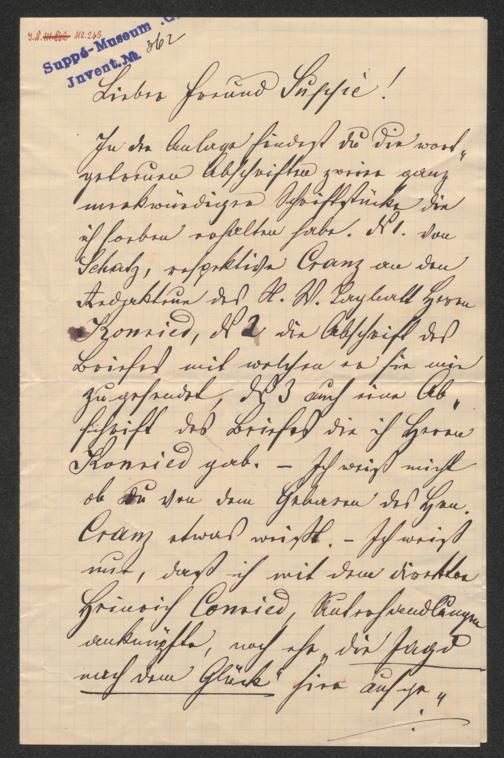 I.N. 110.246
Suppé-Museum
Invent. №. 362
Lieber Freund Suppé!
In der Anlage findest Du die wort-
getreuen Abschriften zweier ganz
merkwürdiger Schriftstücke die
ich soeben erhalten habe. № 1. von
Schatz, respektive Cranz an den
Redakteur des N. W. Tagblatt Herrn
Konried, № 2 die Abschrift des
Briefes mit welchen er sie mir
zugesendet, № 3 auch eine Ab-
schrift des Briefes die ich Herrn
Konried gab. – Ich weiß nicht
ob Du von dem Gebaren des Hrn.
Cranz etwas weißt. – Ich weiß
nur, daß ich mit dem Direktor
Heinrich Conried, Unterhandlungen
anknüpfte, noch ehe „die Jagd
nach dem Glück" hier aufge-